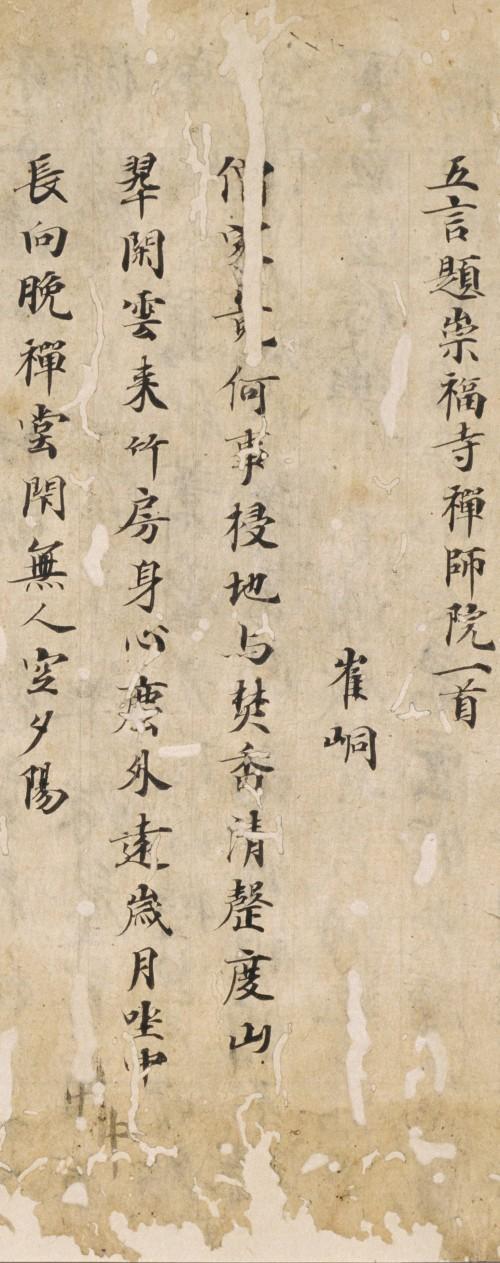 五言題崇福寺禪師院一首
崔峒
僧家竟何事掃地与焚香清磬度山
翠閑雲来竹房身心塵外遠歳月坐中
長向晚禪堂閇無人空夕陽